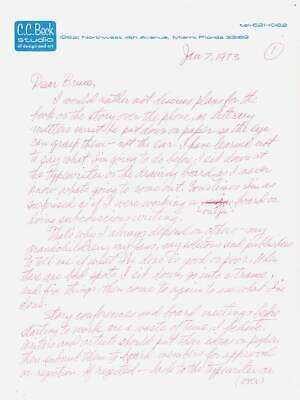 C.C. Beck
studio
of design and art
tel: 621-1062
19621 Northwest 4th Avenue, Miami Florida 33169
Jan 7, 1973
1
Dear Bruce,
I would rather not discuss plans for the
book or the story over the phone, as literary
matters must be put down on paper so the eye
can grasp them - not the ear. I have learned not
to say what I'm going to do before I sit down at
the typewriter or the drawing board as I never
know what's going to come out. Sometimes I'm as
surprised as if I were working a board or
ouija
doing subconscious writing.
That's why I always depend on others - my
grandchildren, my fans, my editors and publishers
to tell me if what I've done is good or poor. When
there are bad spots, I sit down, go into a trance,
and fix things, then come to again to see what I've
done.
Story conferences and board meetings before
starting to work are a waste of time, I believe.
Writers and artists should put their ideas on paper,
then submit them to board members for approval
or rejection. If rejected - back to the typewriter or
(over)